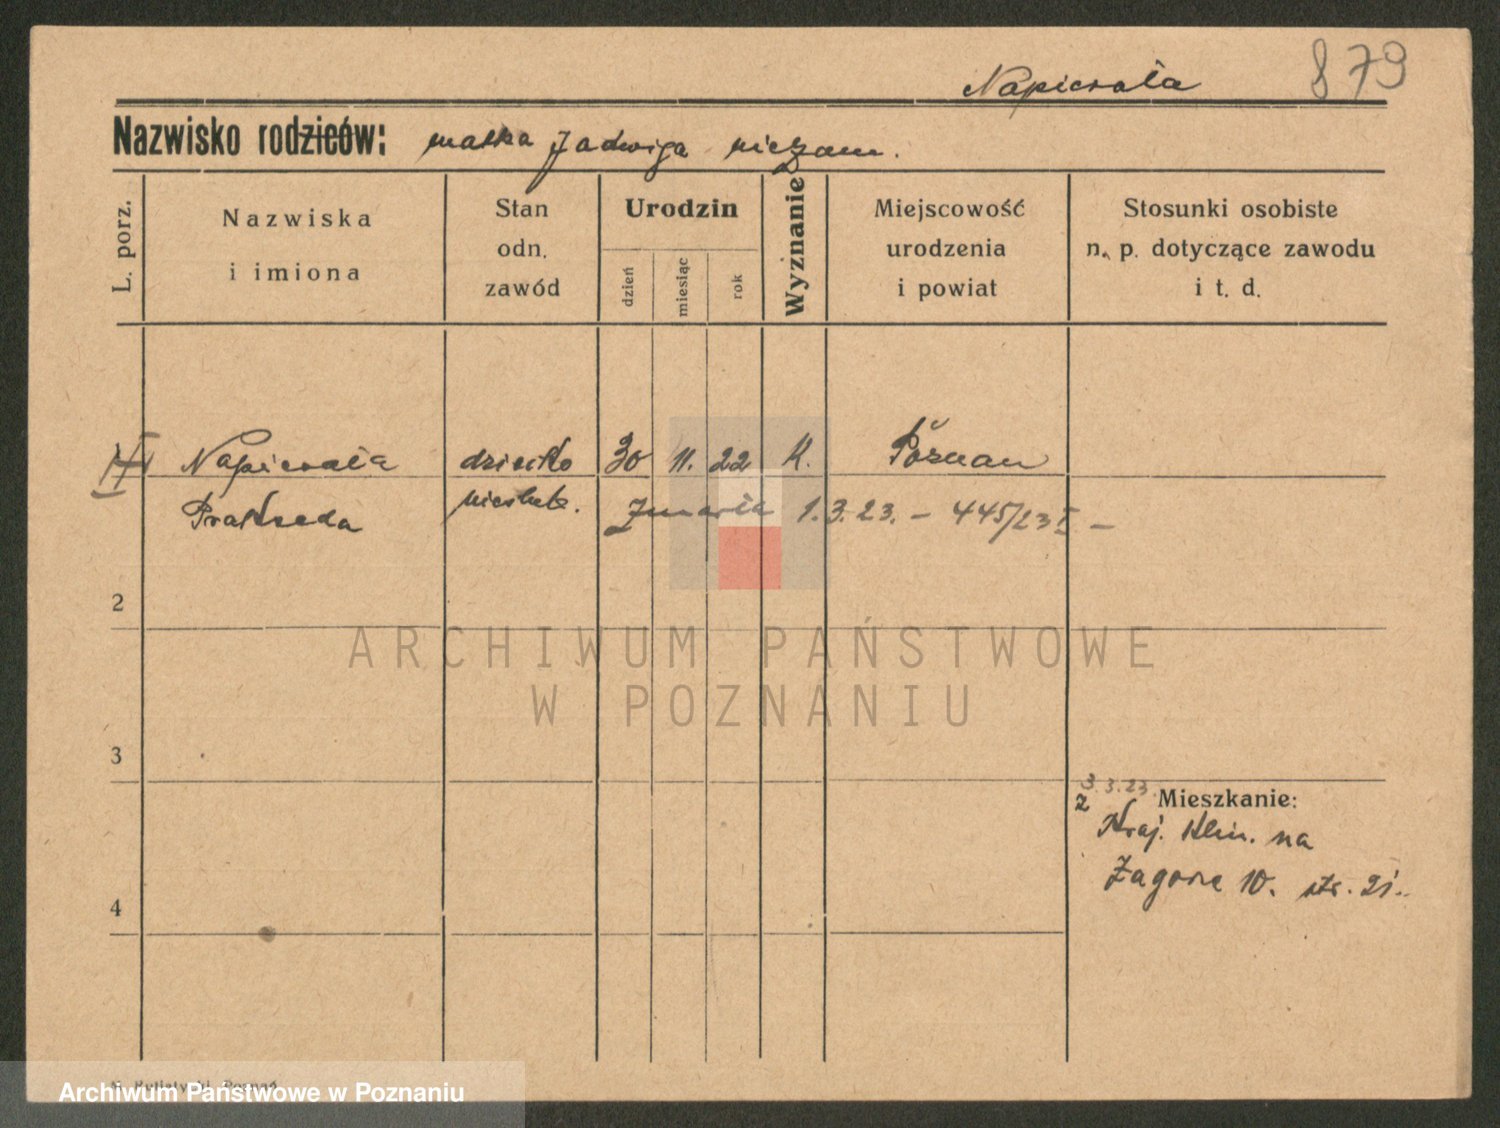 879
Napierała
Nazwisko rodziców: matka Jadwiga niezam.
L. porz.
Nazwiska
i imiona
Stan
odn.
zawód
Urodzin
dzień
miesiąc
rok
Wyznanie
Miejscowość
urodzenia
i powiat
Stosunki osobiste
n. p. dotyczące zawodu
i t. d.
Napierała dziecko 30 11. 22 K. Poznań
Prakseda nieślub. Zmarła 1.3.23. – 445/23 I –
2
3
3.3.23
z Mieszkanie:
Kraj. Klin. na
Zagórze 10. str. 21.
4
ARCHIWUM PAŃSTWOWE
W POZNANIU
Archiwum Państwowe w Poznaniu